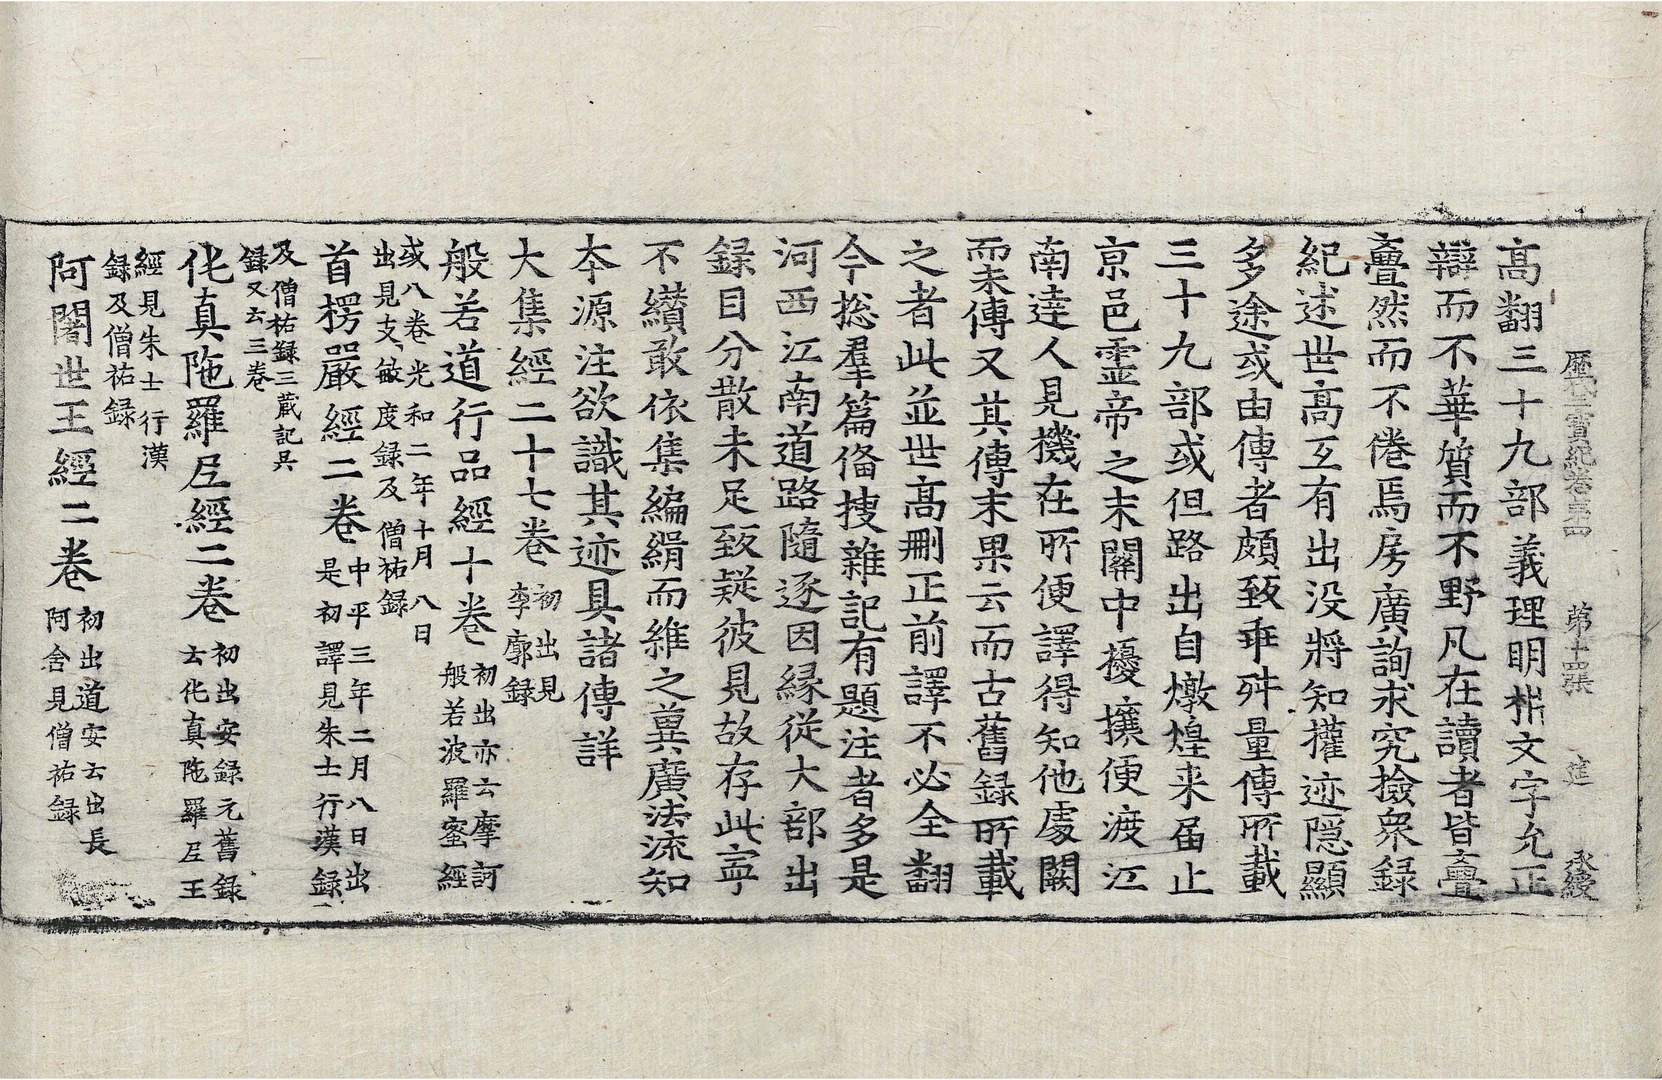 歷代三寶紀卷第四 第十四張 筵 永綬
高翻三十九部義理明析文字允正
辯而不華質而不野凡在讀者皆亹
亹然而不倦焉房廣詢求究撿眾録
紀述世高互有出没將知權迹隱顯
多途或由傳者頗致乖舛量傳所載
三十九部或但路出自燉煌来届止
亰邑靈帝之末關中擾攘便渡江
南達人見機在所便譯得知他處闕
而未傳又其傳末果云而古舊録所載
之者此並世高刪正前譯不必全翻
今捴羣篇俻捜雜記有題注者多是
河西江南道路隨逐因縁從大部出
録目分散未足致疑彼見故存此寧
不纉敢依集編緝而維之兾廣法流知
本源注欲識其迹具諸傳詳
大集經二十七卷 初出見
李廓録
般若道行品經十卷 初出亦云摩訶
般若波羅蜜經
或八卷光和二年十月八日
出見支敏度録及僧祐録
首楞嚴經二卷 中平三年二月八日出
是初譯見朱士行漢録
及僧祐録三藏記具
録又云三卷
伅真陁羅𡰱經二卷 初出安録元舊録
云伅真陁羅𡰱王
經見朱士行漢
録及僧祐録
阿闍世王經二卷 初出道安云出長
阿含見僧祐録